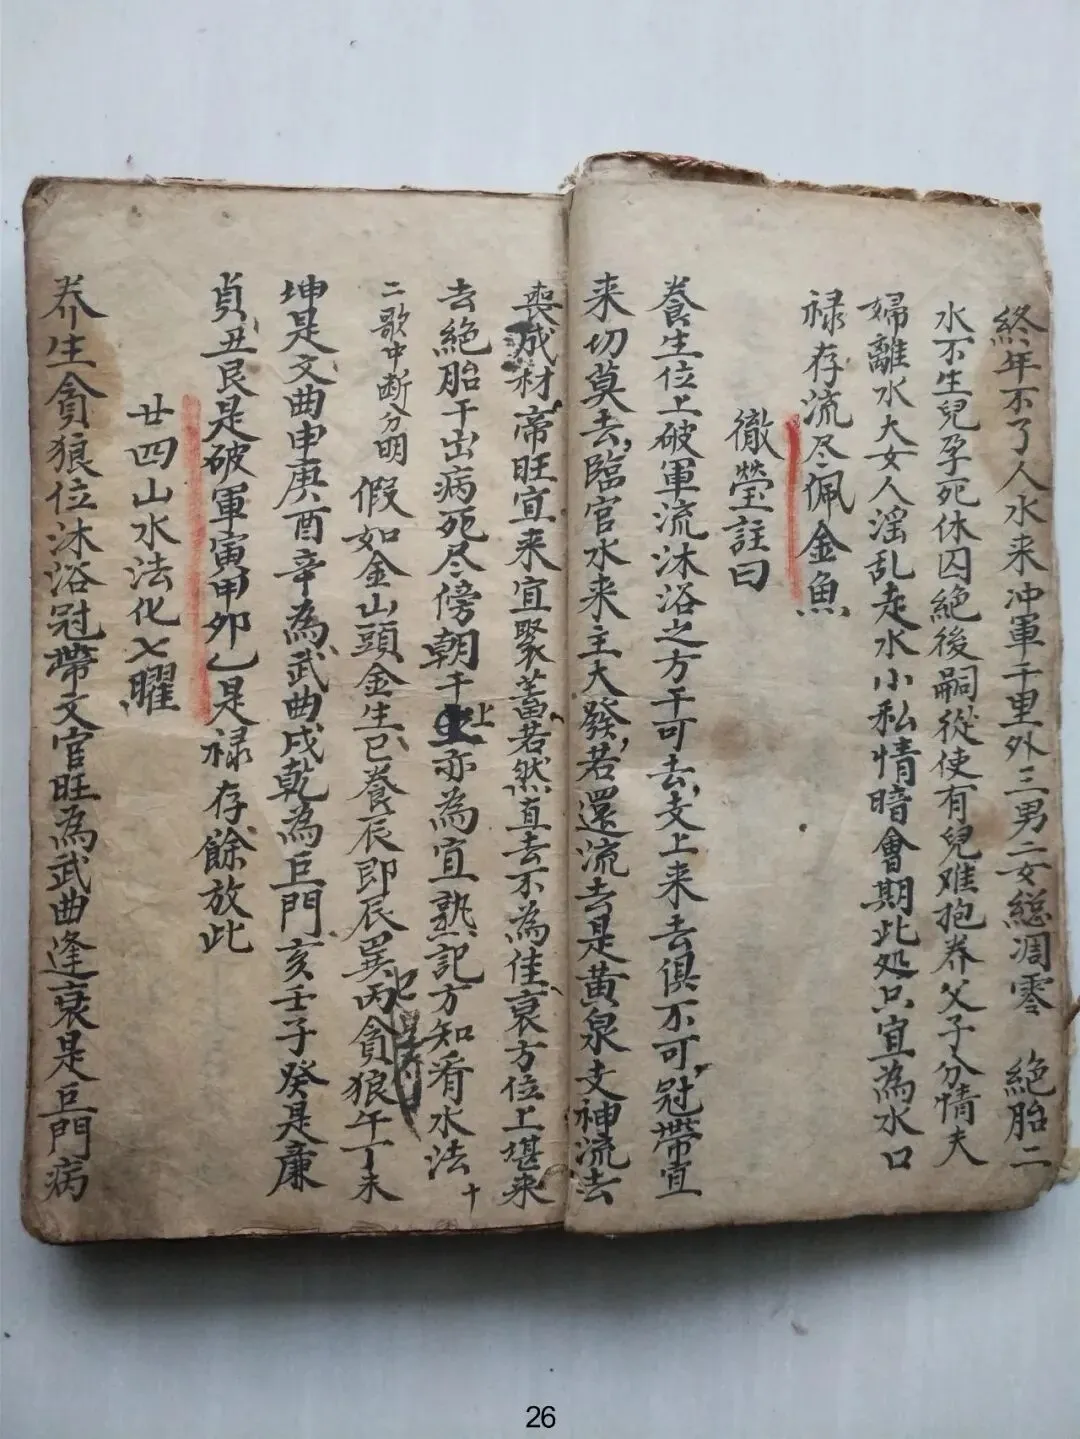 終年不了人水来冲軍千里外三男二女總凋零　絶胎二
水不生兒孕死休囚絶後嗣從使有兒难抱养父子分情夫
婦離水大女人淫乱走水小私情暗會期此処只宜為水口
禄存流尽佩金魚
徹瑩註曰
養生位上破軍流沐浴之方干可去支上来去俱不可冠帶宜
来切莫去臨官水来主大發若還流去是黄泉支神流去
喪成材帝旺宜来宜聚蓄若然直去不為佳衰方位上堪来
去絶胎干出病死尽傍朝干上亦為宜熟記方知看水法十
二歌中断分明　假如金山頭金生巳養辰即辰巽丙貪狼午丁未
坤是文曲申庚酉辛為武曲戌乾為巨門亥壬子癸是廉
貞丑艮是破軍寅甲卯乙是禄存餘放此
廿四山水法化七曜
养生貪狼位沐浴冠帶文官旺為武曲逢衰是巨門病
26